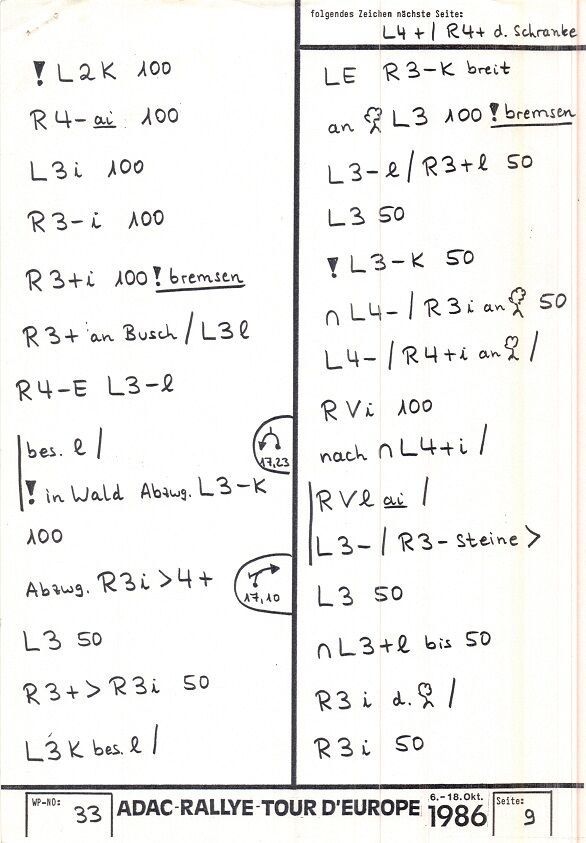 folgendes Zeichen nächste Seite:
L4+/ R4+ d. Schranke
! L2K 100
R4-ai 100
L3i 100
R3-i 100
R3+i 100 ! bremsen
R3+ an Busch / L3l
R4-E L3-l
bes. l /
17,23
! in Wald Abzwg. L3-K
100
Abzwg. R3i > 4+
17,10
L3 50
R3+ > R3i 50
L3K bes. l /
LE R3-K breit
an L3 100 ! bremsen
L3-l / R3+l 50
L3 50
! L3-K 50
∩ L4- / R3i an 50
L4- / R4+i an /
RVi 100
nach ∩ L4+i /
RVl ai /
L3- / R3- Steine >
L3 50
∩ L3+l bis 50
R3i d. /
R3i 50
WP-NO: 33
ADAC-RALLYE-TOUR D'EUROPE
6.-18.Okt.
1986
Seite: 9